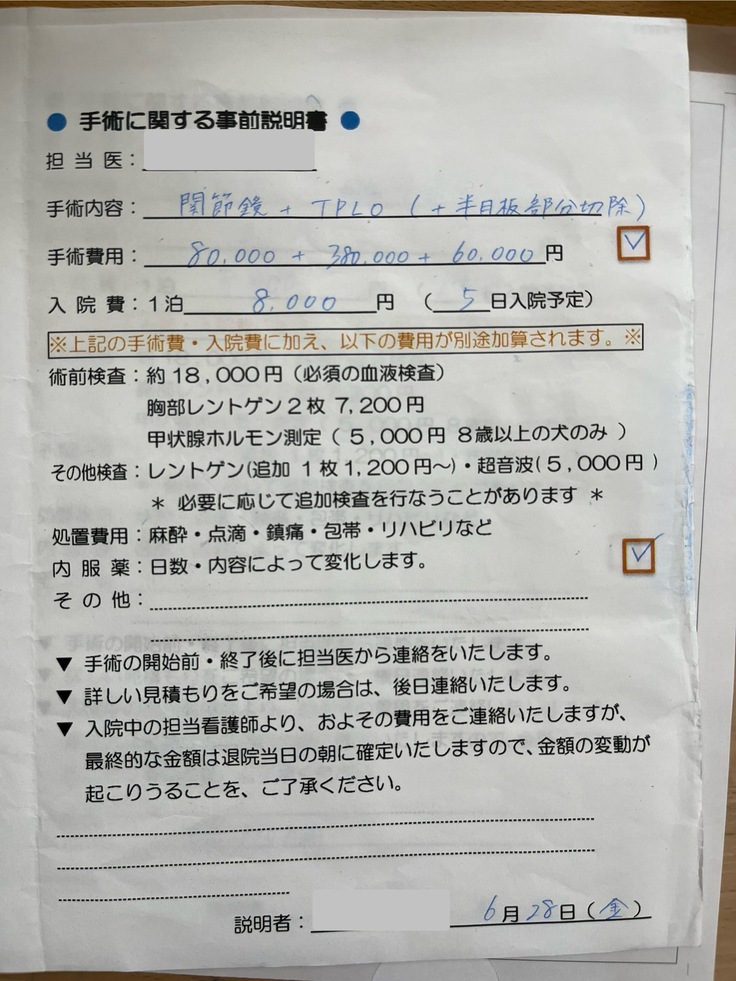 ● 手術に関する事前説明書 ●
担当医：
手術内容： 関節鏡 + TPLO (+ 半月板部分切除)
手術費用： 80,000 + 380,000 + 60,000 円
入院費：1泊 8,000 円 （ 5 日入院予定）
※上記の手術費・入院費に加え、以下の費用が別途加算されます。※
術前検査：約18,000円（必須の血液検査）
胸部レントゲン2枚 7,200円
甲状腺ホルモン測定（ 5,000円 8歳以上の犬のみ ）
その他検査：レントゲン(追加 1枚1,200円～)・超音波(5,000円 )
＊ 必要に応じて追加検査を行なうことがあります ＊
処置費用：麻酔・点滴・鎮痛・包帯・リハビリなど
内服薬：日数・内容によって変化します。
その他：
▼ 手術の開始前・終了後に担当医から連絡をいたします。
▼ 詳しい見積もりをご希望の場合は、後日連絡いたします。
▼ 入院中の担当看護師より、およその費用をご連絡いたしますが、
最終的な金額は退院当日の朝に確定いたしますので、金額の変動が
起こりうることを、ご了承ください。
説明者： 6月28日（金）